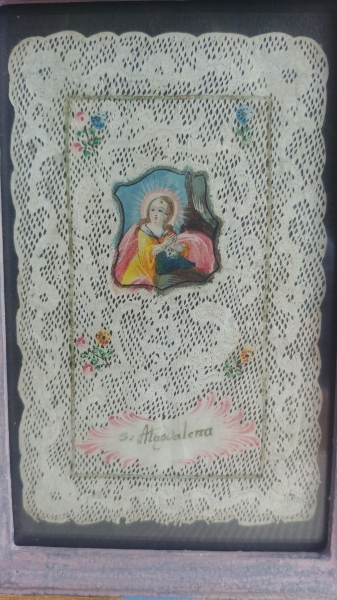 S. Magdalena